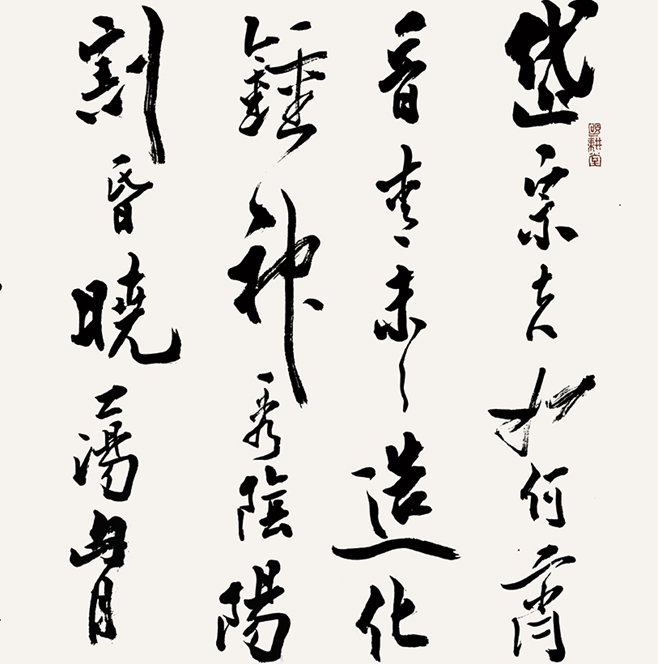 岱宗夫如何齊
魯青未了造化
鍾神秀陰陽
割昏曉蕩胷